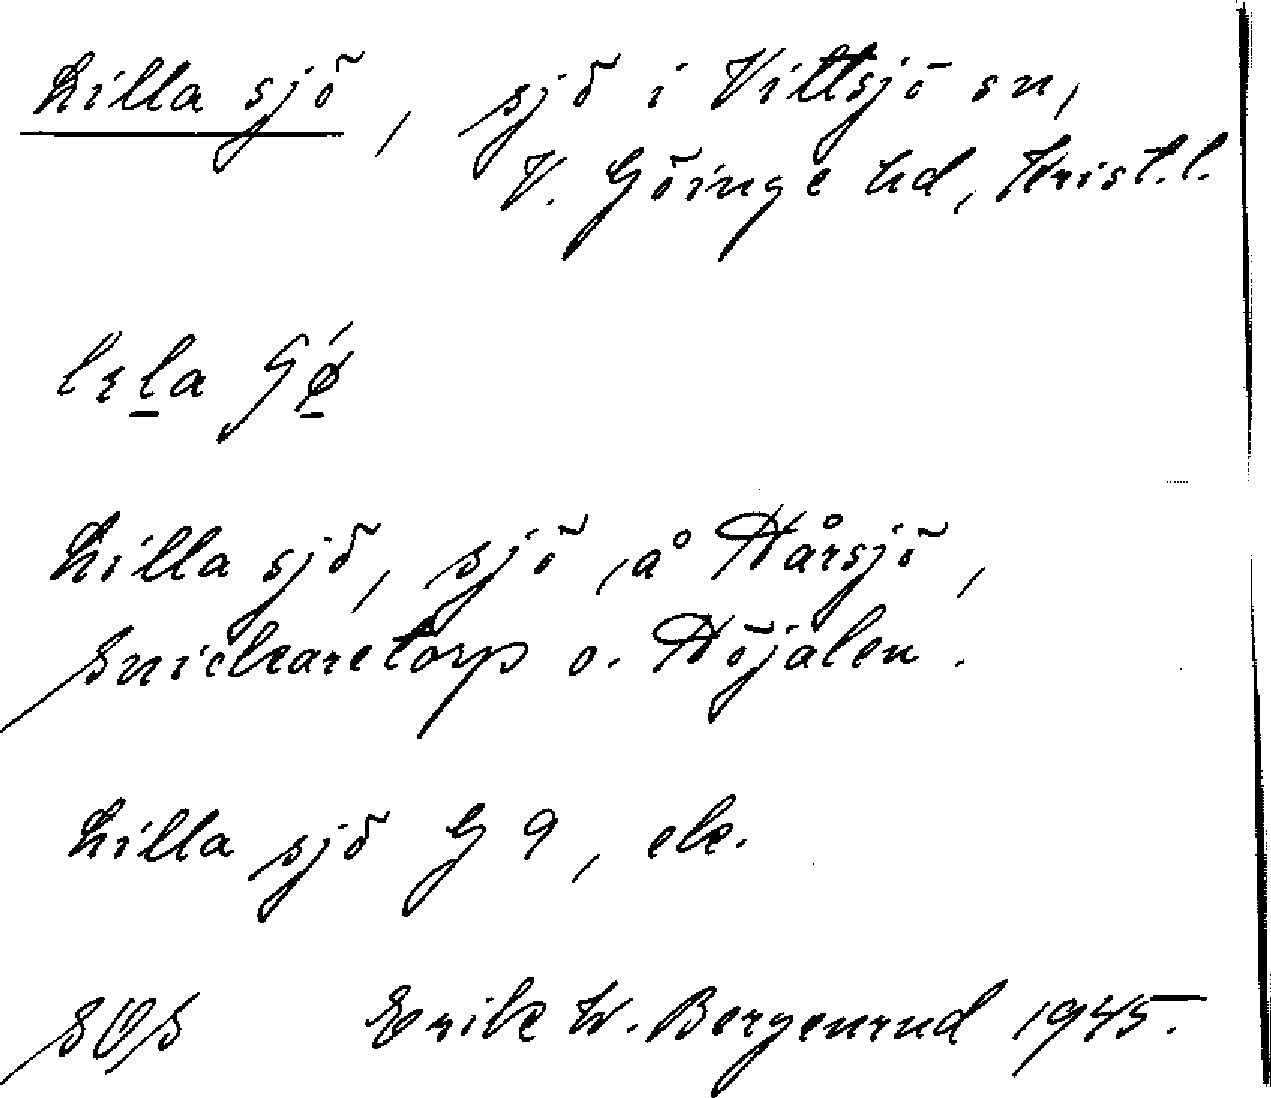 Lilla sjö, sjö i Vittsjö sn,
V. Göinge hd, Krist.l.
Lilla sjö, sjö, å Hårsjö,
Snickaretorp o. Höjalen.
Lilla sjö G 9, ek.
SOS Erik W. Bergenrud 1945.